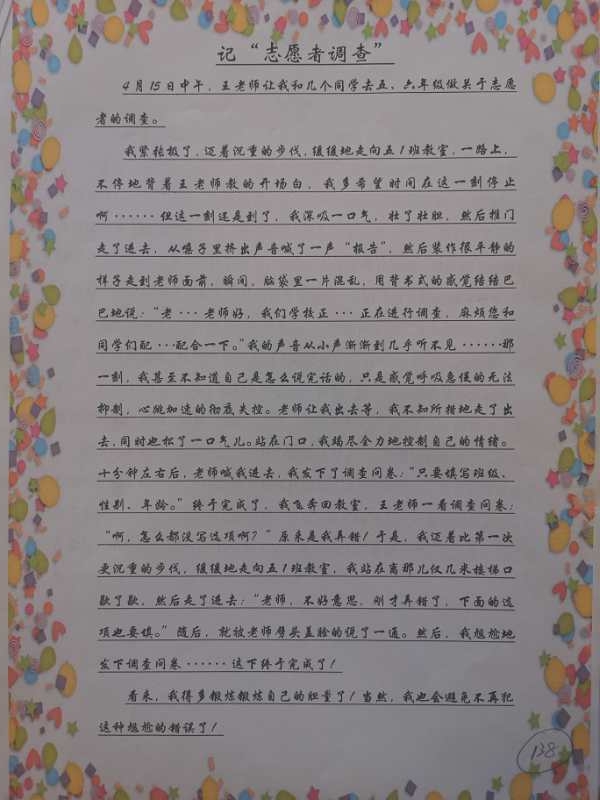 记“志愿者调查”
4月15日中午，王老师让我和几个同学去五、六年级做关于志愿
者的调查。
我紧张极了，迈着沉重的步伐，缓缓地走向五1班教室，一路上，
不停地背着王老师教的开场白，我多希望时间在这一刻停止
啊······但这一刻还是到了，我深吸一口气，壮了壮胆，然后推门
走了进去，从嗓子里挤出声音喊了一声“报告”，然后装作很平静的
样子走到老师面前，瞬间，脑袋里一片混乱，用背书式的感觉结结巴
巴地说：“老···老师好，我们学校正···正在进行调查，麻烦您和
同学们配···配合一下。”我的声音从小声渐渐到几乎听不见······那
一刻，我甚至不知道自己是怎么说完话的，只是感觉呼吸急促的无法
抑制，心跳加速的彻底失控。老师让我出去等，我不知所措地走了出
去，同时也松了一口气儿。站在门口，我竭尽全力地控制自己的情绪。
十分钟左右后，老师喊我进去，我发下了调查问卷：“只要填写班级、
性别、年龄。”终于完成了，我飞奔回教室，王老师一看调查问卷：
“啊，怎么都没写选项啊？”原来是我弄错！于是，我迈着比第一次
更沉重的步伐，缓缓地走向五1班教室，我站在离那儿仅几米楼梯口
歇了歇，然后走了进去：“老师，不好意思，刚才弄错了，下面的选
项也要填。”随后，就被老师劈头盖脸的说了一通。然后，我尴尬地
发下调查问卷······这下终于完成了！
看来，我得多锻炼锻炼自己的胆量了！当然，我也会避免不再犯
这种尴尬的错误了！
138